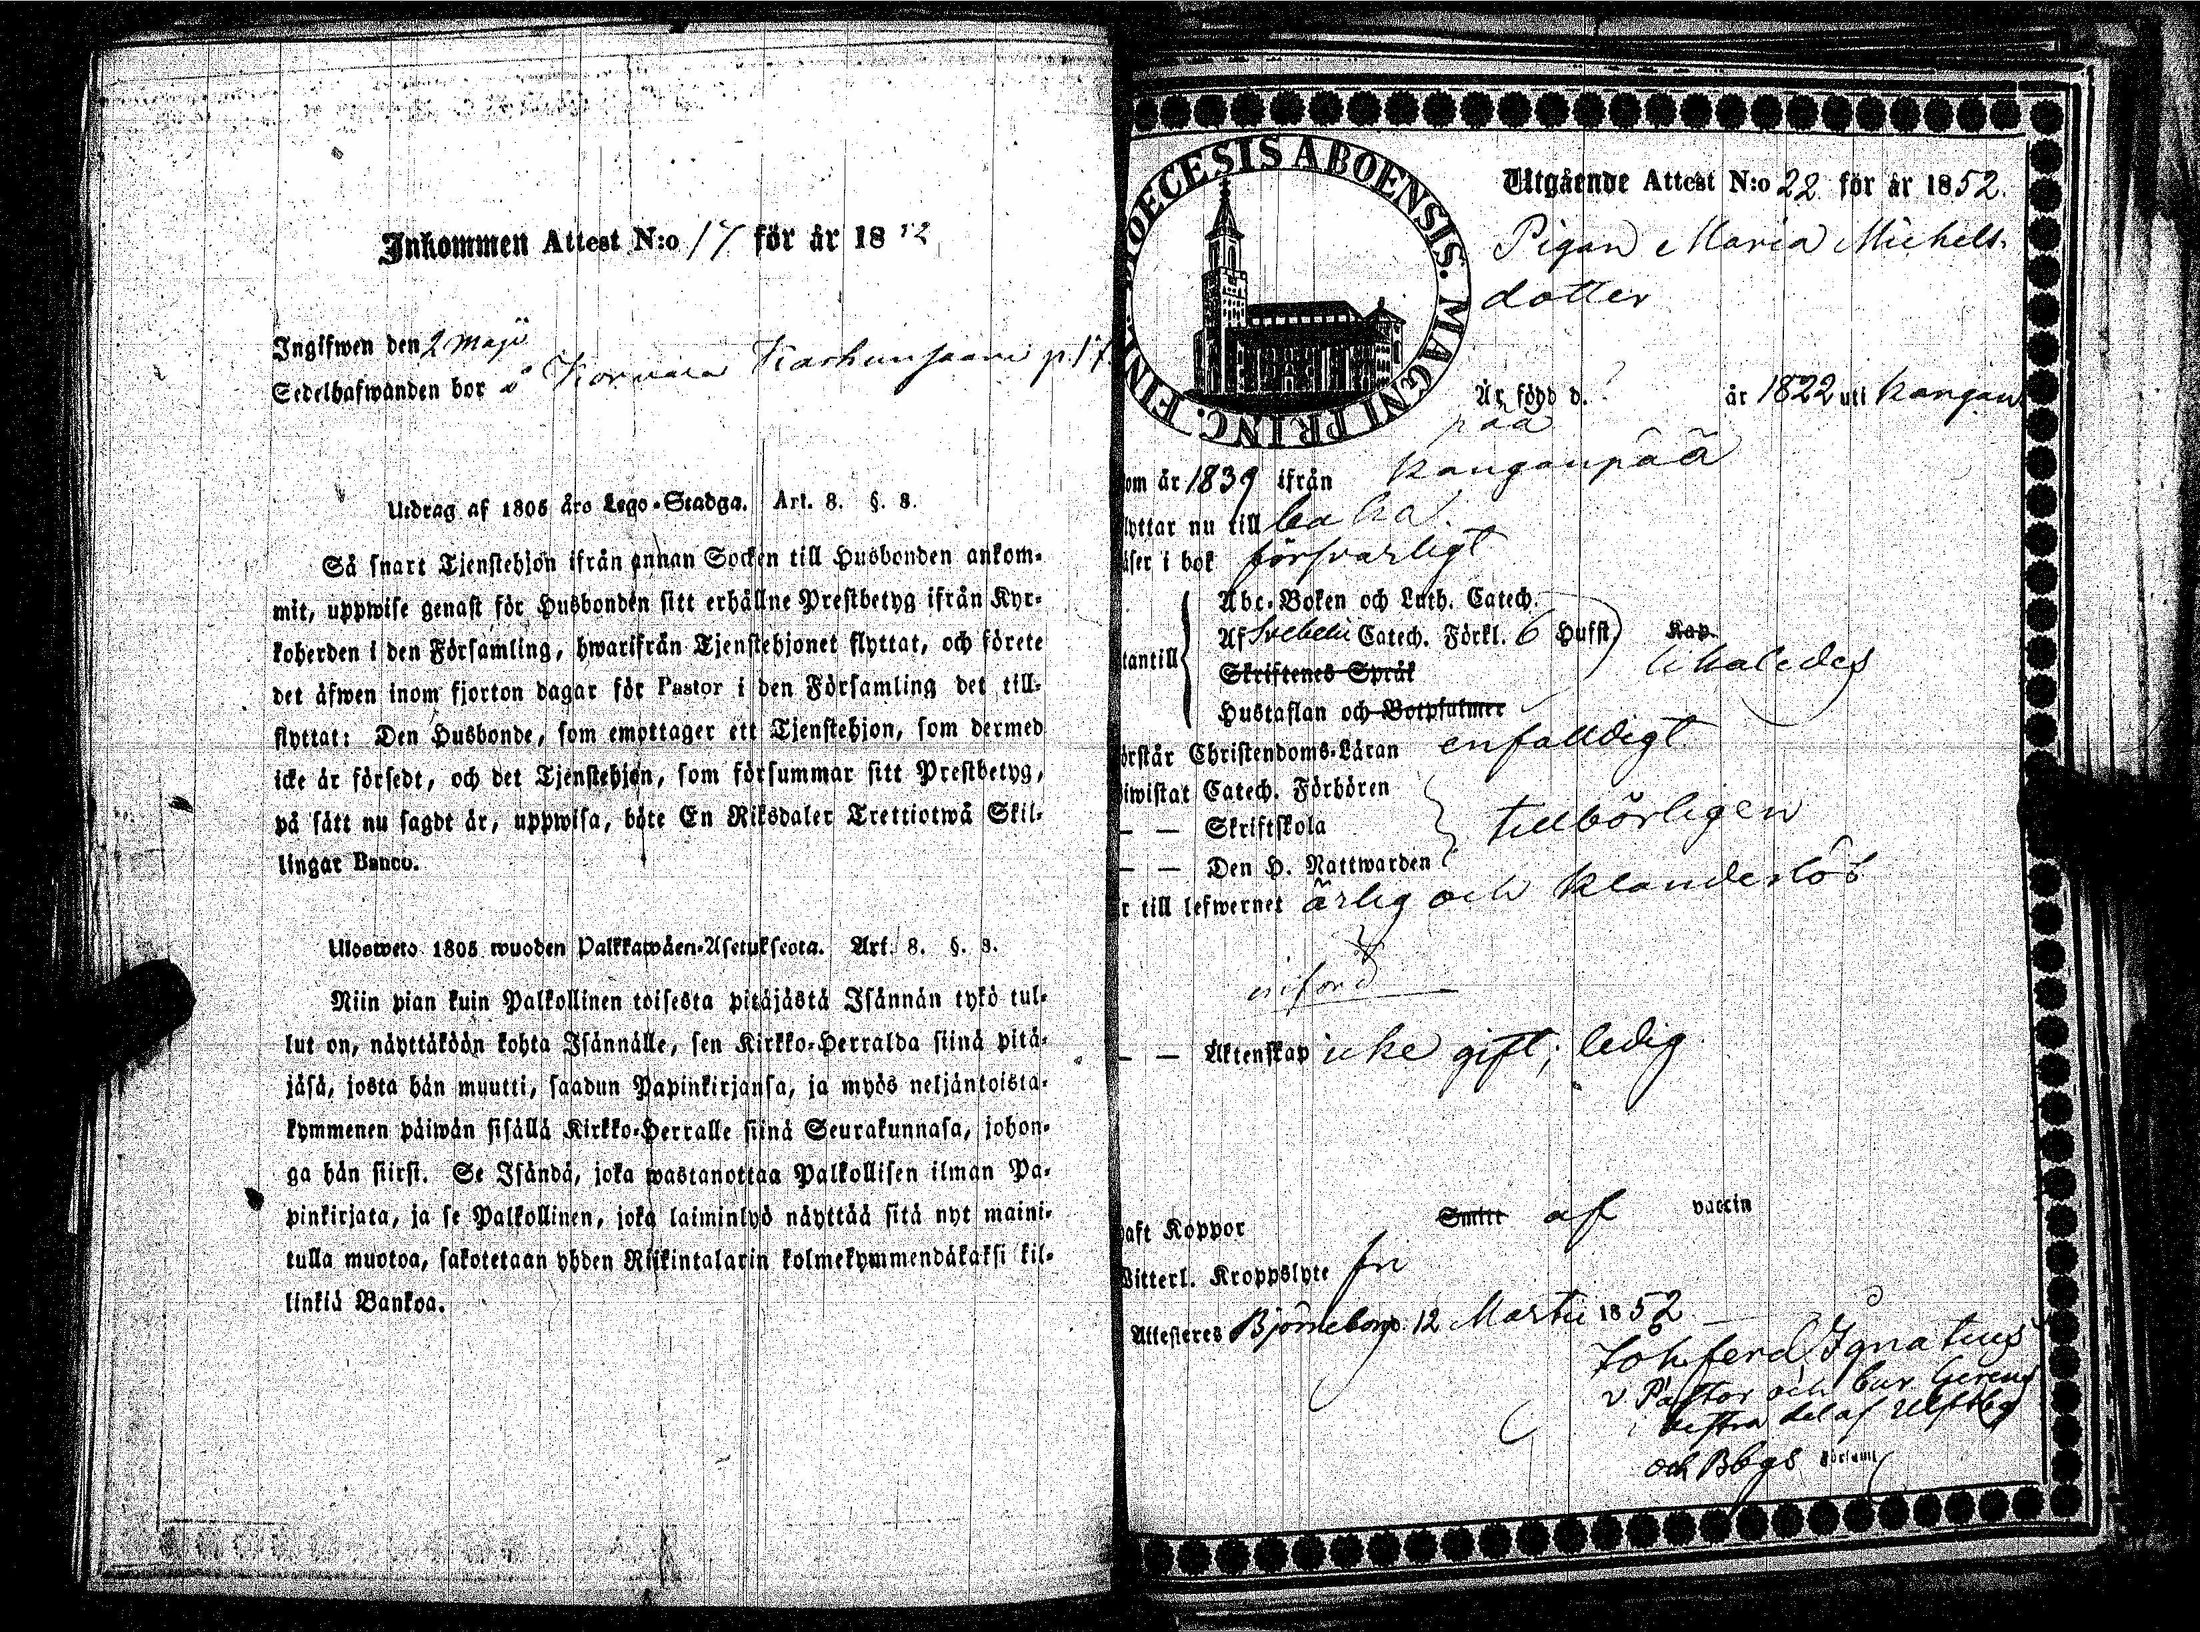 Inkommen Attest N:o 17 för år 1852
Ingifwen den 2 Maji
Sedelhafwanden bor å Korvara Karhunsaari p. 17
Utdrag af 1805 års Lego-Stadga. Art. 8. §. 8.
Så snart Tjenstehjon ifrån annan Socken till Husbonden ankom-
mit, uppwise genast för Husbonden sitt erhållne Prestbetyg ifrån Kyr-
koherden i den Församling, hwarifrån Tjenstehjonet flyttat, och förete
det äfwen inom fjorton dagar för Pastor i den Församling det till-
flyttat: Den Husbonde, som emottager ett Tjenstehjon, som dermed
icke är försedt, och det Tjenstehjon, som försummar sitt Prestbetyg,
på sätt nu sagdt är, uppwisa, böte En Riksdaler Trettiotwå Skil-
lingar Banco.
Ulosweto 1805 wuoden Palkkawäen-Asetuksesta. Art. 8. §. 8.
Niin pian kuin Palkollinen toisesta pitäjästä Isännän tykö tul-
lut on, näyttäköön kohta Isännälle, sen Kirkko-Herralda siinä pitä-
jäsä, josta hän muutti, saadun Papinkirjansa, ja myös neljäntoista-
kymmenen päiwän sisällä Kirkko-Herralle siinä Seurakunnasa, johon-
ga hän siirsi. Se Isändä, joka wastanottaa Palkollisen ilman Pa-
pinkirjata, ja se Palkollinen, joka laiminlyö näyttää sitä nyt maini-
tulla muotoa, sakotetaan yhden Riikintalarin kolmekymmendäkaksi kil-
linkiä Bankoa.
DIOECESIS ABOENSIS. MAGNI PRINC. FINL.
Utgående Attest N:o 22 för år 1852.
Pigan Maria Michels-
dotter
Är född d. ? år 1822 uti Kangan
pää
om år 1839 ifrån Kanganpää
lyttar nu till baka.
äser i bok försvarligt
Abc-Boken och Luth. Catech.
Af Svebelii Catech. Förkl. 6 Hufst. Kap.
tantill Skriftenes Språk likaledes
Hustaflan och Botpsalmer
örstår Christendoms-Läran enfalldigt
iwistat Catech. Förhören
— — Skriftskola tillbörligen
— — Den H. Nattwarden
r till lefwernet ärlig och klanderlös
— — Äktenskap icke gift; ledig
aft Koppor Smitt af vaccin
Witterl. Kroppslyte fri
Attesteres Björneborg 12 Martii 1852
Joh. Ferd. Ignatius
v. Pastor och
del af Ulfsby
och Bbgs Församl.